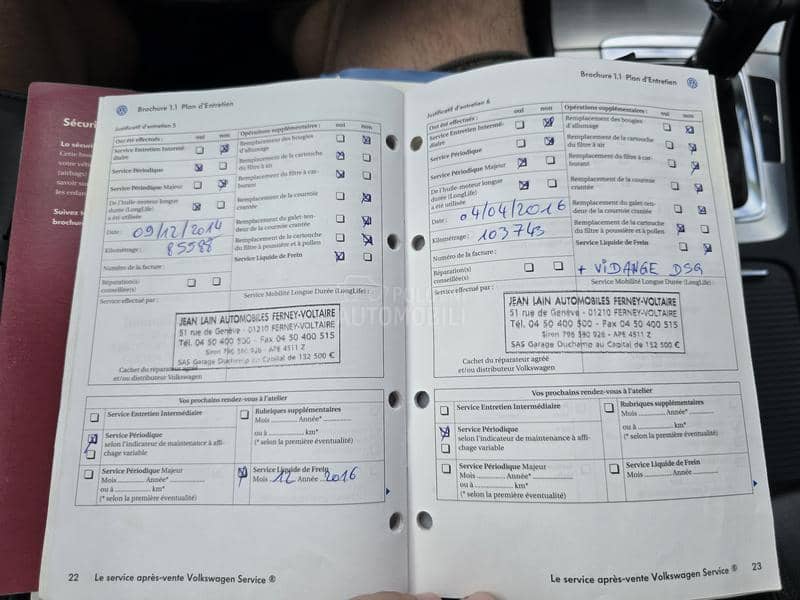 Sécuri
Brochure 1.1 Plan d'Entretien
Justificatif d'entretien 5
Ont été effectués : oui non
Service Entretien Intermé-
diaire
Service Périodique
Service Périodique Majeur
De l'huile-moteur longue
durée (LongLife)
a été utilisée
Date : 09/12/2014
Kilométrage : 85588
Numéro de la facture :
Réparation(s)
conseillée(s) :
Service effectué par :
Opérations supplémentaires : oui non
Remplacement des bougies
d'allumage
Remplacement de la cartouche
du filtre à air
Remplacement du filtre à car-
burant
Remplacement de la courroie
crantée
Remplacement du galet ten-
deur de la courroie crantée
Remplacement de la cartouche
du filtre à poussière et à pollen
Service Liquide de Frein
Service Mobilité Longue Durée (LongLife) :
JEAN LAIN AUTOMOBILES FERNEY-VOLTAIRE
51 rue de Genève - 01210 FERNEY-VOLTAIRE
Tél. 04 50 400 500 - Fax 04 50 400 515
Siren 796 580 926 - APE 4511 Z
SAS Garage Duchamp au Capital de 132 500 €
Cachet du réparateur agréé
et/ou distributeur Volkswagen
Vos prochains rendez-vous à l'atelier
Service Entretien Intermédiaire
Service Périodique
selon l'indicateur de maintenance à affi-
chage variable
Service Périodique Majeur
Mois Année*
ou à km*
(* selon la première éventualité)
Rubriques supplémentaires
Mois Année*
ou à km*
(* selon la première éventualité)
Service Liquide de Frein
Mois 12 Année 2016
22 Le service après-vente Volkswagen Service ®
Brochure 1.1 Plan d'Entretien
Justificatif d'entretien 6
Ont été effectués : oui non
Service Entretien Intermé-
diaire
Service Périodique
Service Périodique Majeur
De l'huile-moteur longue
durée (LongLife)
a été utilisée
Date : 04/04/2016
Kilométrage : 103743
Numéro de la facture :
Réparation(s)
conseillée(s) :
Service effectué par :
Opérations supplémentaires : oui non
Remplacement des bougies
d'allumage
Remplacement de la cartouche
du filtre à air
Remplacement du filtre à car-
burant
Remplacement de la courroie
crantée
Remplacement du galet ten-
deur de la courroie crantée
Remplacement de la cartouche
du filtre à poussière et à pollen
Service Liquide de Frein
+ VIDANGE DSG
Service Mobilité Longue Durée (LongLife) :
JEAN LAIN AUTOMOBILES FERNEY-VOLTAIRE
51 rue de Genève - 01210 FERNEY-VOLTAIRE
Tél. 04 50 400 500 - Fax 04 50 400 515
Siren 796 580 926 - APE 4511 Z
SAS Garage Duchamp au Capital de 132 500 €
Cachet du réparateur agréé
et/ou distributeur Volkswagen
Vos prochains rendez-vous à l'atelier
Service Entretien Intermédiaire
Service Périodique
selon l'indicateur de maintenance à affi-
chage variable
Service Périodique Majeur
Mois Année*
ou à km*
(* selon la première éventualité)
Rubriques supplémentaires
Mois Année*
ou à km*
(* selon la première éventualité)
Service Liquide de Frein
Mois Année
Le service après-vente Volkswagen Service ® 23